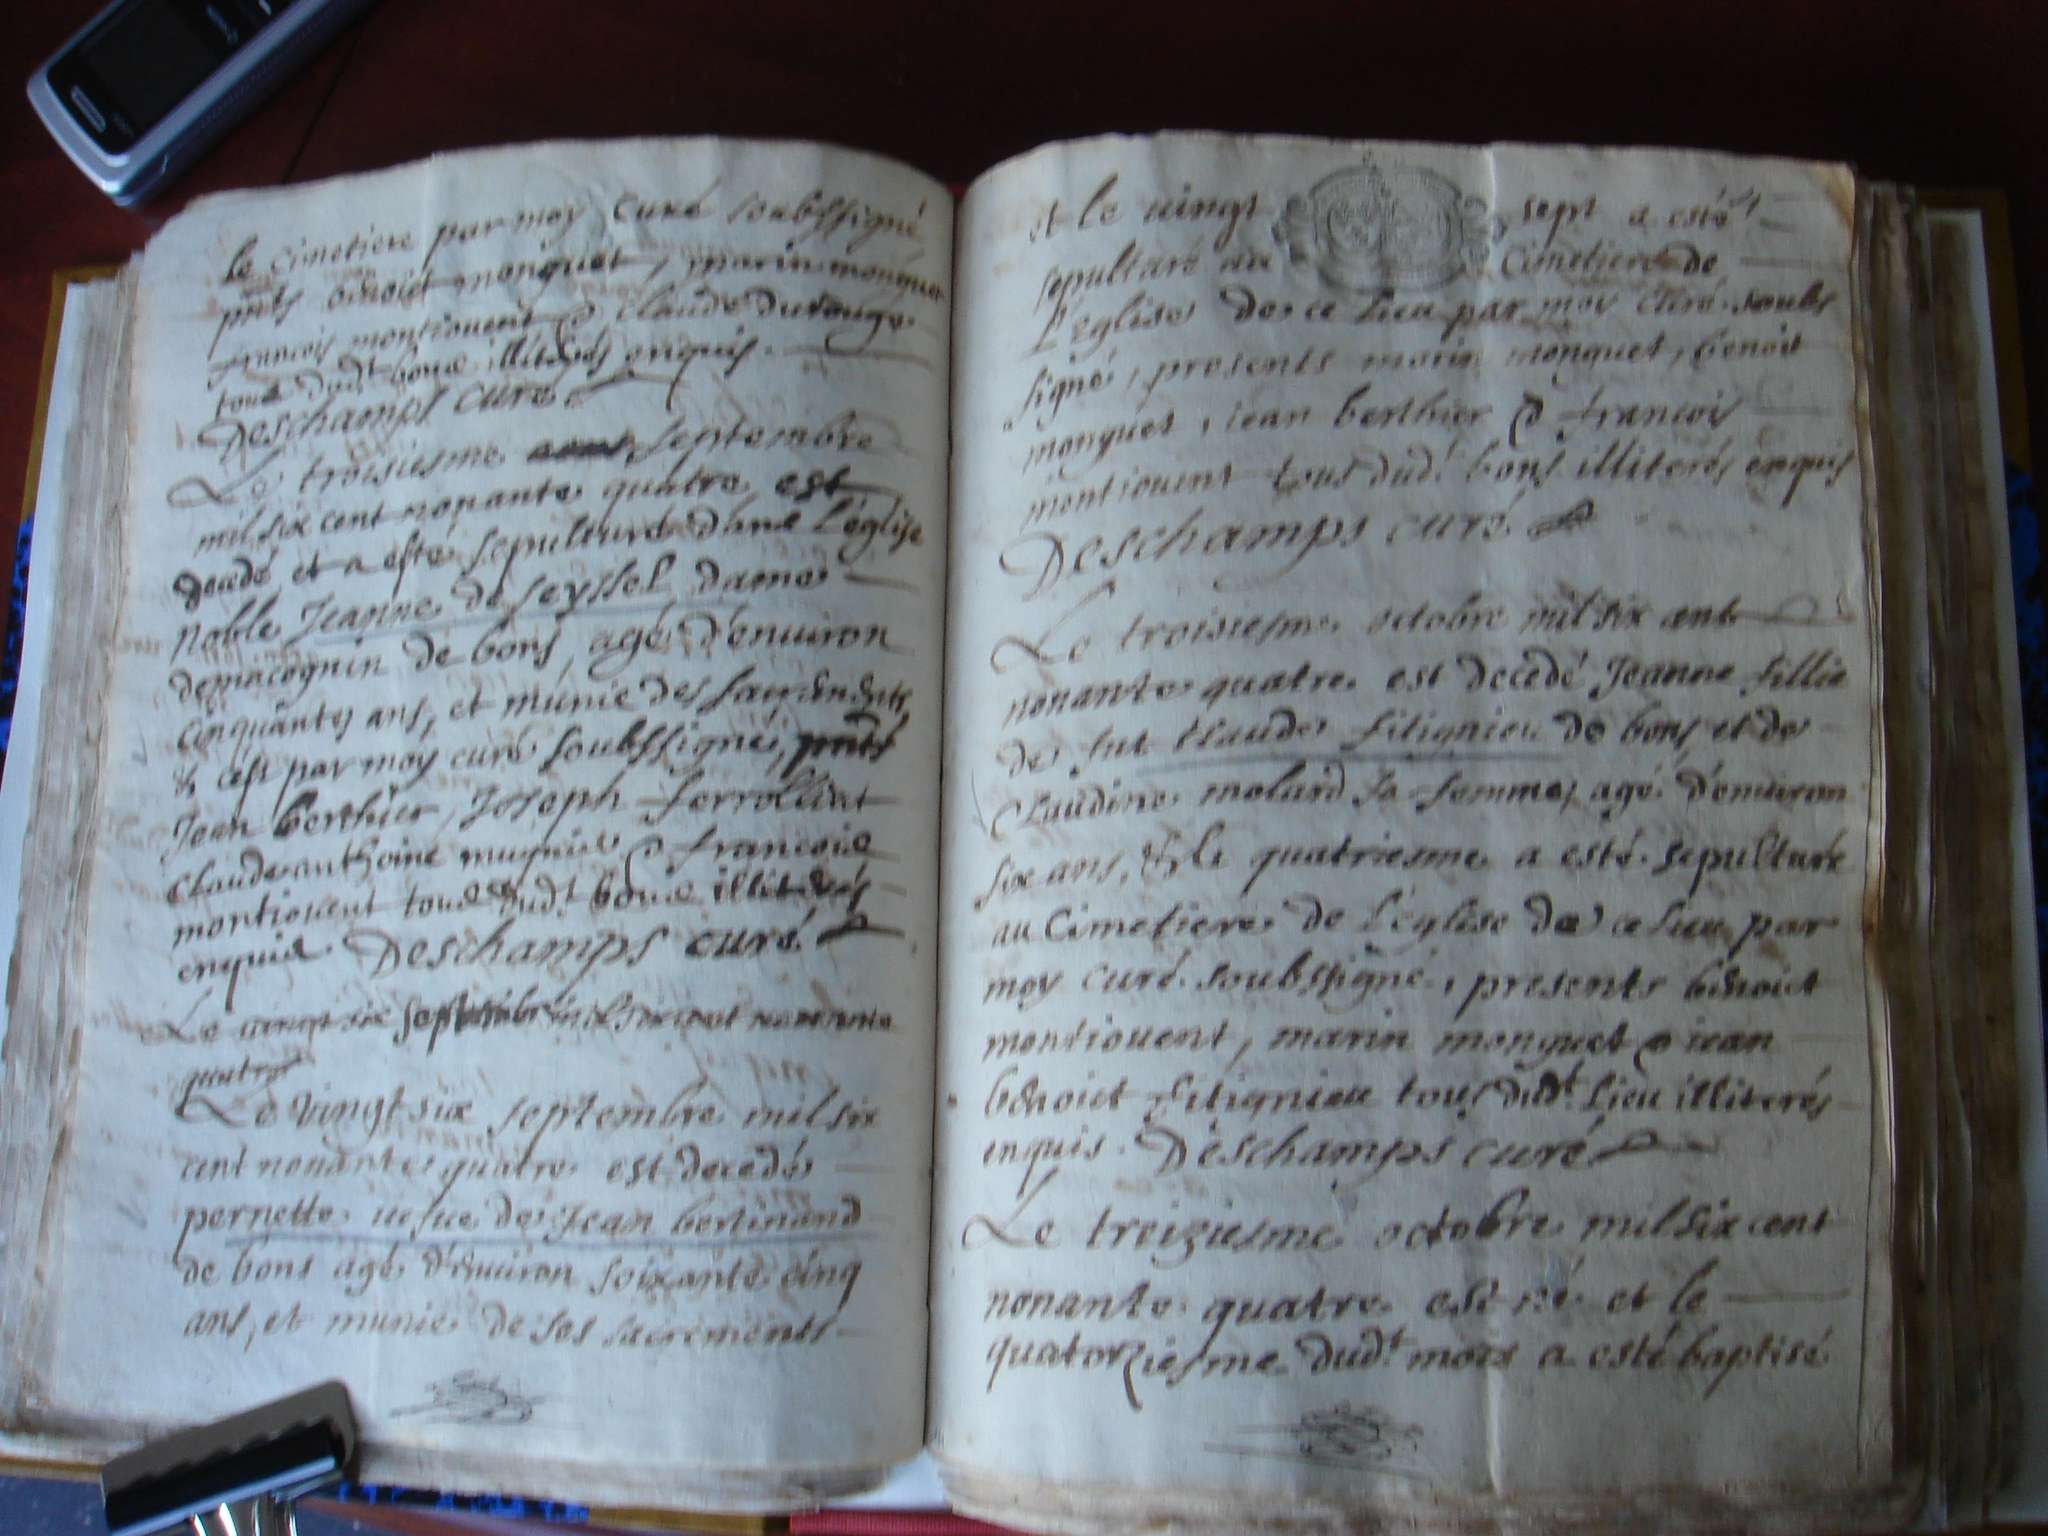 le Cimetiere par moy Curé soubssigné
pnts benoist monguet, marin monguet
francois montiouent & Claude durouge
tous dudt bons illiterés enquis.
Deschamps curé
Le troisiesme septembre
mil six cent nonante quatre est
decedé et a esté sepulturé dans l'église
noble Jeanne de seyssel dame
demacognin de bons, agé d'enuiron
cinquantes ans, et munie des
& c'est par moy curé soubssigné, pnts
Jean berthier, Joseph ferrolliat
Claude anthoine mugnié & francois
montiouent tous dudt bons illiterés
enquis. Deschamps curé
Le vingt six septembre mil six cent nonante
quatre
Le vingt six septembre mil six
cent nonante quatre est decedé
pernette uefue de Jean bertinand
de bons agé d'enuiron soixante cinq
ans, et munie de ses sacrements
et le uingt sept a esté
sepulturé au Cimetiere de
l'eglise de ce lieu par moy Curé soubs
signé, presents marin monguet, benoit
monguet, iean berthier & francois
montiouent tous dudt bons illiterés enquis
Deschamps curé
Le troisiesme octobre mil six cent
nonante quatre est decedé Jeanne fillie
de fut Claude fitignieu de bons et de
Claudine molard sa femme, agé d'enuiron
six ans, & le quatriesme a esté sepulturé
au Cimetiere de l'église de ce lieu par
moy curé soubssigné, presents benoit
montiouent, marin monguet & iean
benoit fitignieu tous dudt lieu illiterés
enquis. Deschamps curé
Le treiziesme octobre mil six cent
nonante quatre est né et le
quatorziesme dudt mois a esté baptisé